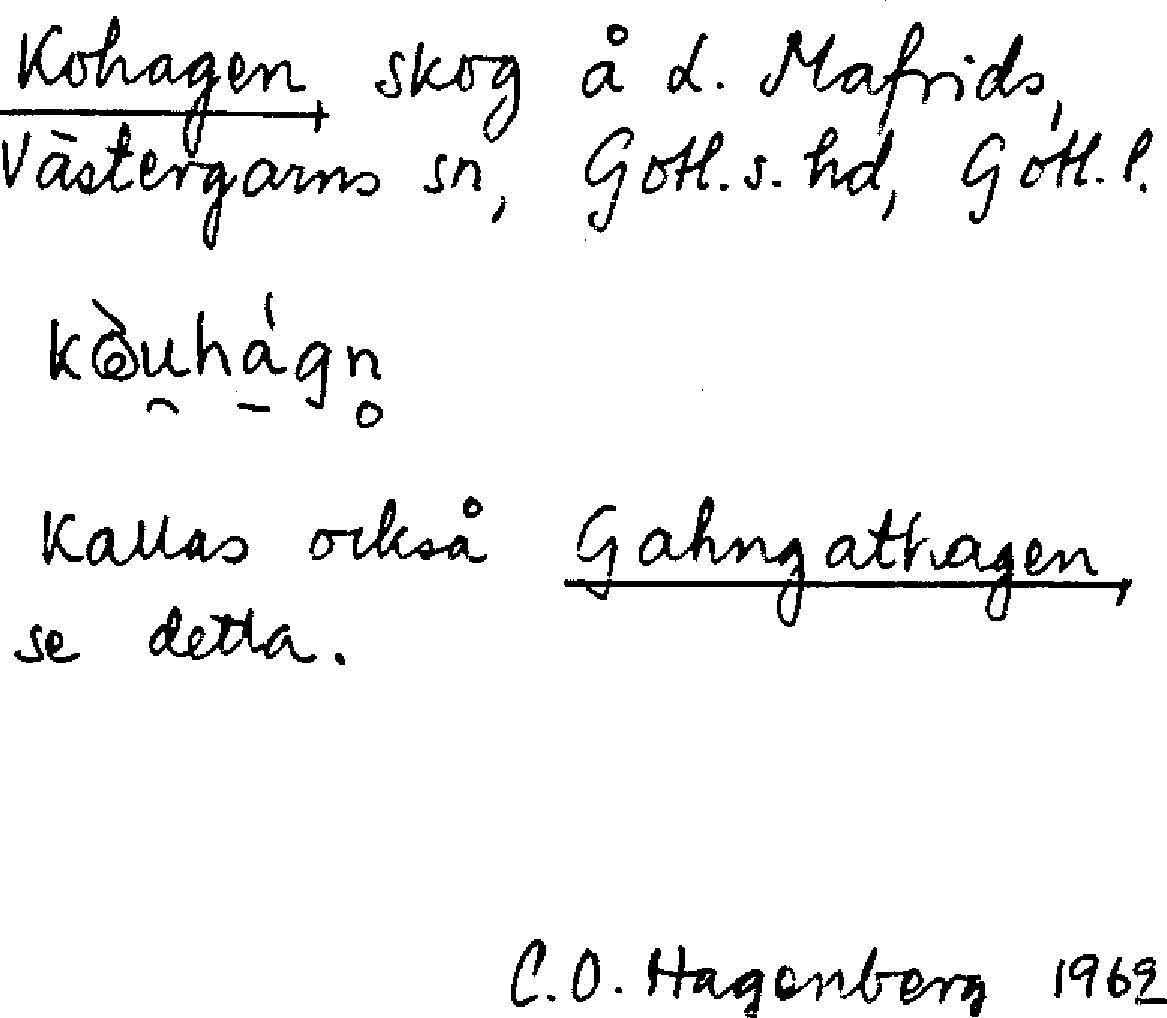 Kohagen, skog å L. Mafrids,
Västergarns sn, Gotl. s. hd, Gotl. l.
kòu̯há̱gn̥
Kallas också Gahngathagen,
se detta.
C. O. Hagenberg 1962